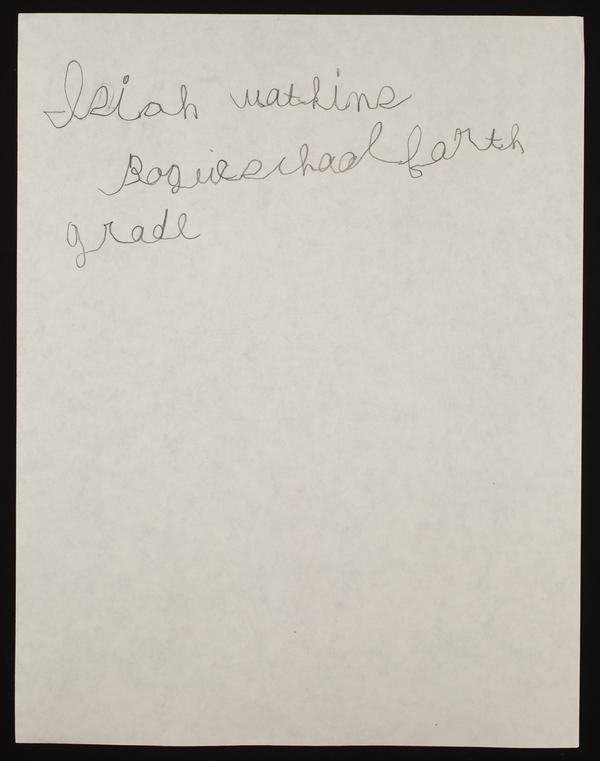 Isiah watkins
Bogue school farth
grade